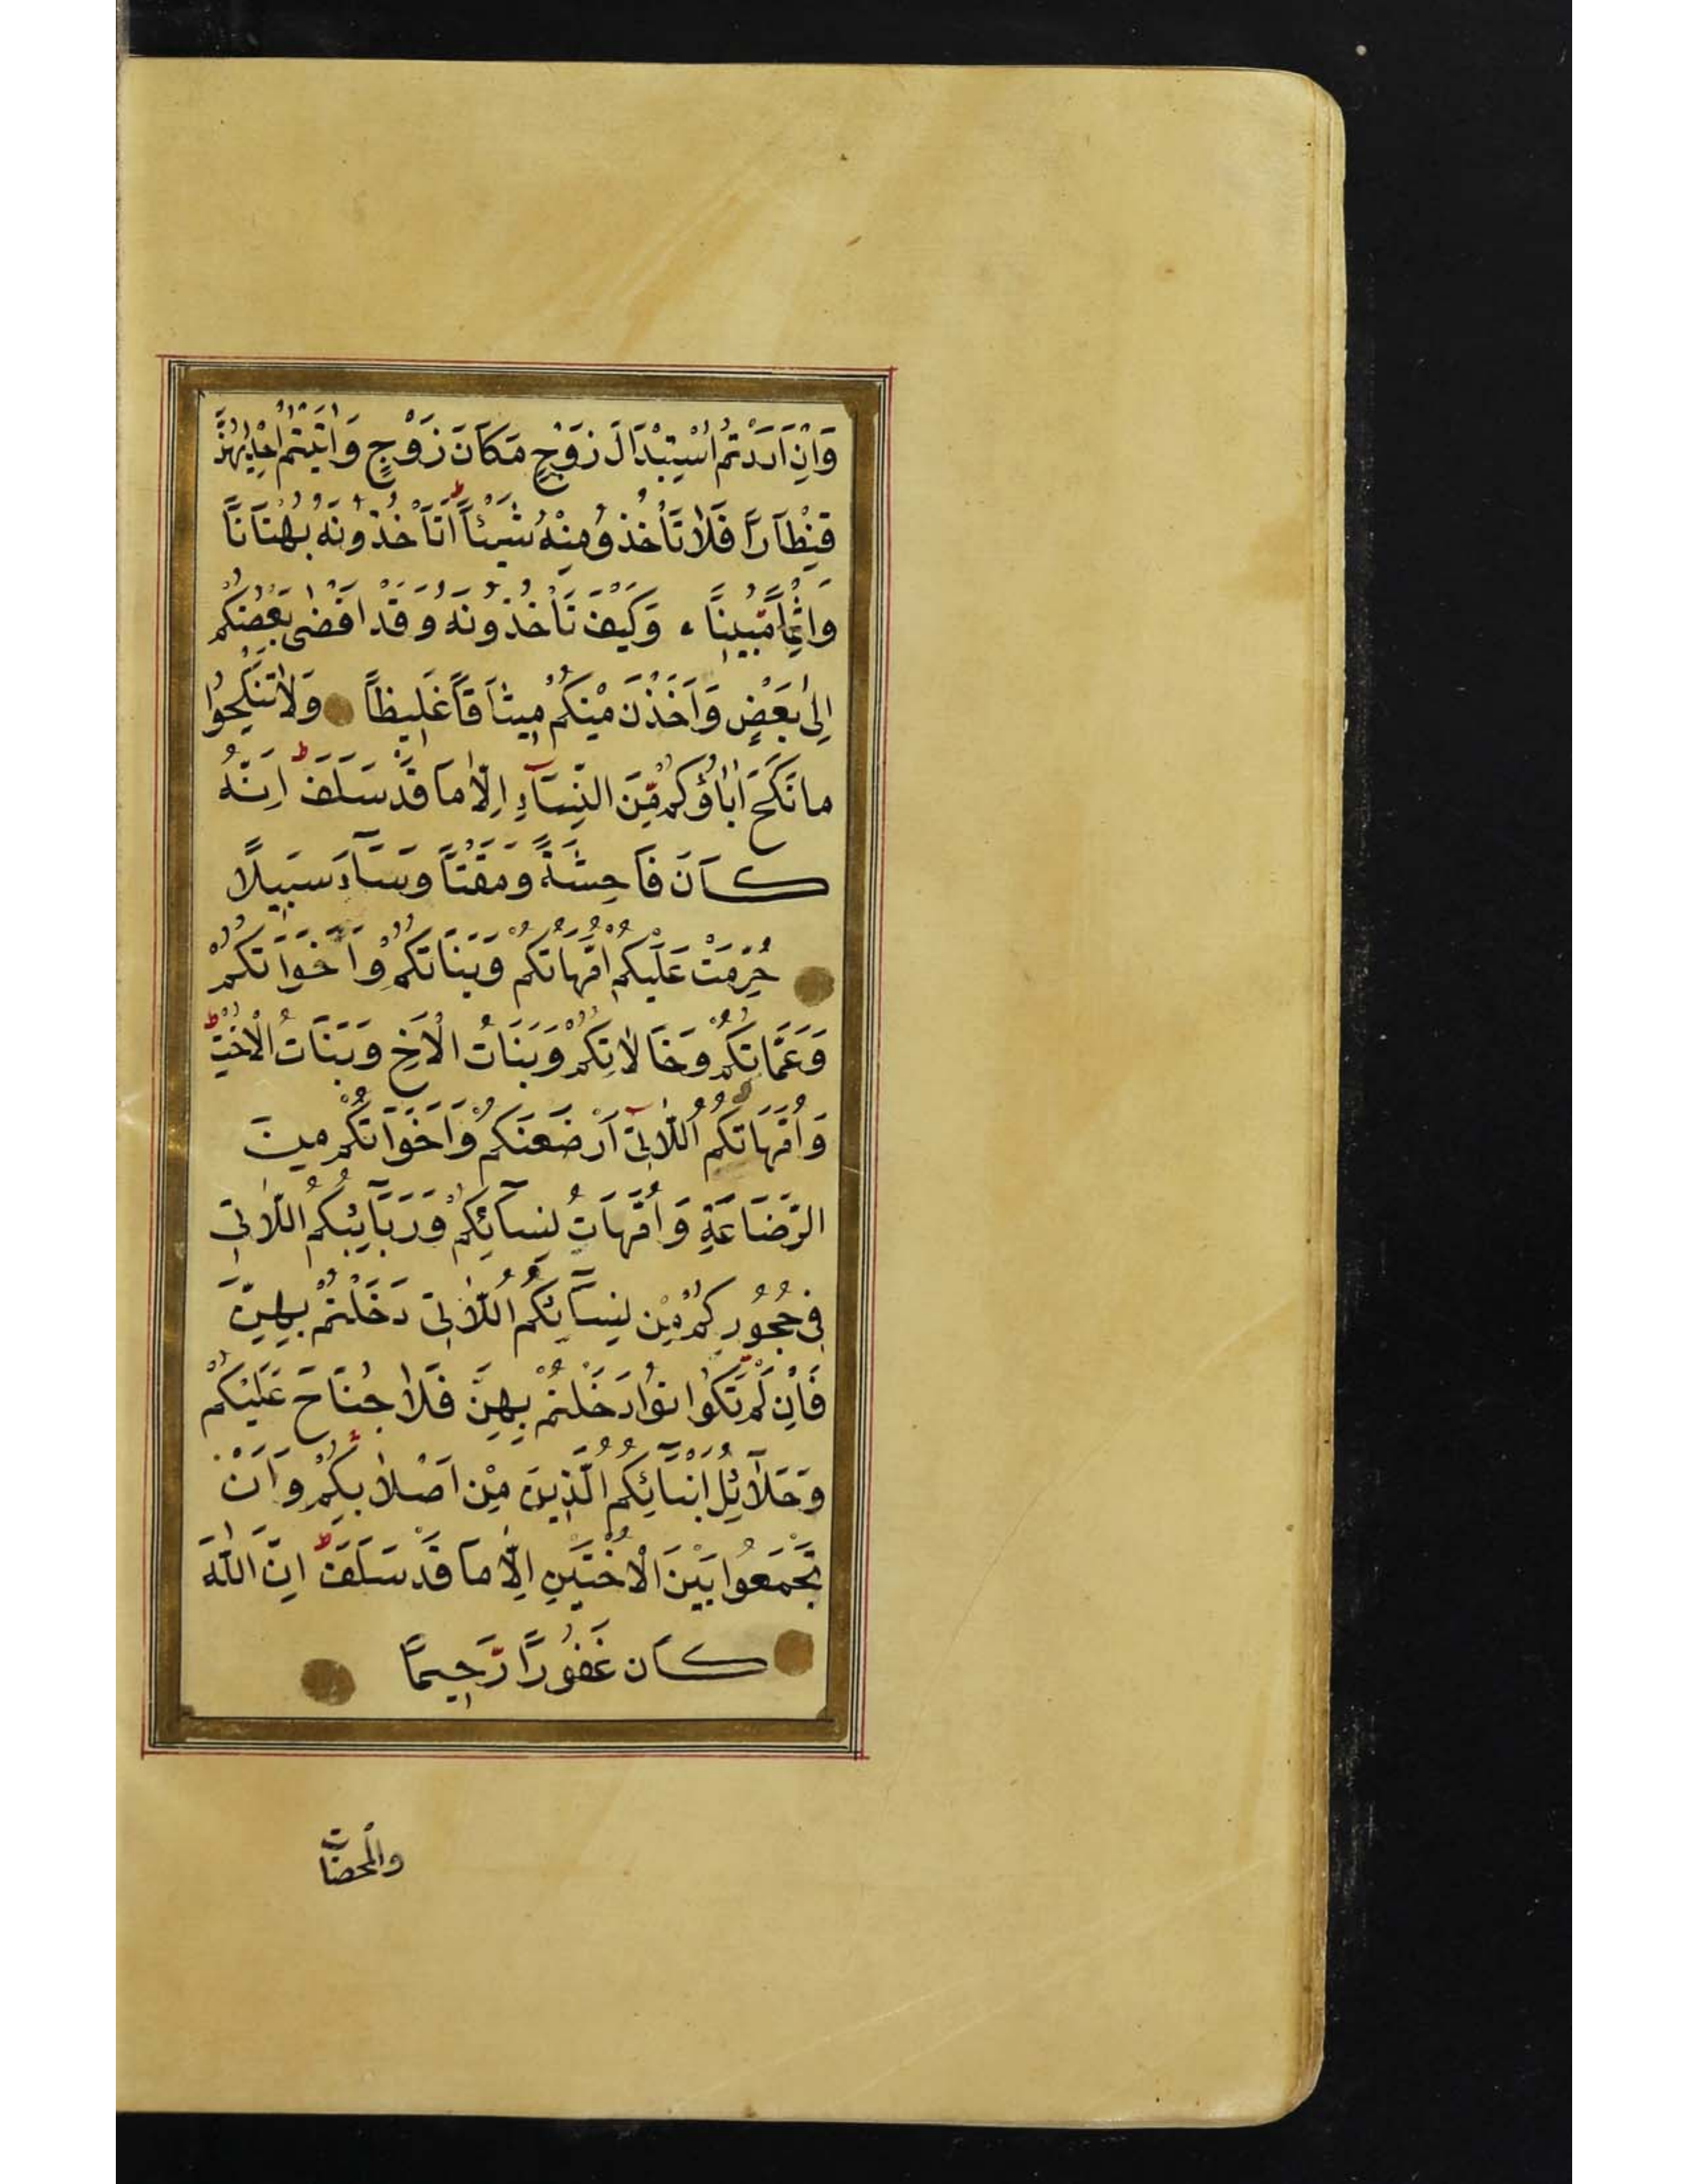 وَاِنْ اَرَدْتُمُ اسْتِبْدَالَ زَوْجٍ مَكَانَ زَوْجٍ وَاٰتَيْتُمْ اِحْدٰيهُنَّ
قِنْطَارًا فَلَا تَأْخُذُو مِنْهُ شَيْئًا ط اَتَأْخُذُونَهُ بُهْتَانًا
وَاِثْمًا مُّبِينًا وَكَيْفَ تَأْخُذُونَهُ وَقَدْ اَفْضٰى بَعْضُكُمْ
اِلٰى بَعْضٍ وَاَخَذْنَ مِنْكُمْ مِيثَاقًا غَلِيظًا وَلَا تَنْكِحُوا
مَا نَكَحَ اٰبَاؤُكُمْ مِّنَ النِّسَآءِ اِلَّا مَا قَدْ سَلَفَ ط اِنَّهُ
كَانَ فَاحِشَةً وَمَقْتًا وَسَآءَ سَبِيلًا
حُرِّمَتْ عَلَيْكُمْ اُمَّهَاتُكُمْ وَبَنَاتُكُمْ وَاَخَوَاتُكُمْ
وَعَمَّاتُكُمْ وَخَالَاتُكُمْ وَبَنَاتُ الْاَخِ وَبَنَاتُ الْاُخْتِ ط
وَاُمَّهَاتُكُمُ اللَّاتِىٓ اَرْضَعْنَكُمْ وَاَخَوَاتُكُمْ مِنَ
الرَّضَاعَةِ وَاُمَّهَاتُ نِسَآئِكُمْ وَرَبَآئِبُكُمُ اللَّاتِى
فِى حُجُورِكُمْ مِّنْ نِسَآئِكُمُ اللَّاتِى دَخَلْتُمْ بِهِنَّ
فَاِنْ لَمْ تَكُوا نُوا دَخَلْتُمْ بِهِنَّ فَلَا جُنَاحَ عَلَيْكُمْ
وَحَلَآئِلُ اَبْنَآئِكُمُ الَّذِينَ مِنْ اَصْلَابِكُمْ وَاَنْ
تَجْمَعُوا بَيْنَ الْاُخْتَيْنِ اِلَّا مَا قَدْ سَلَفَ ط اِنَّ اللّٰهَ
كَانَ غَفُورًا رَّحِيمًا
والمحصنات